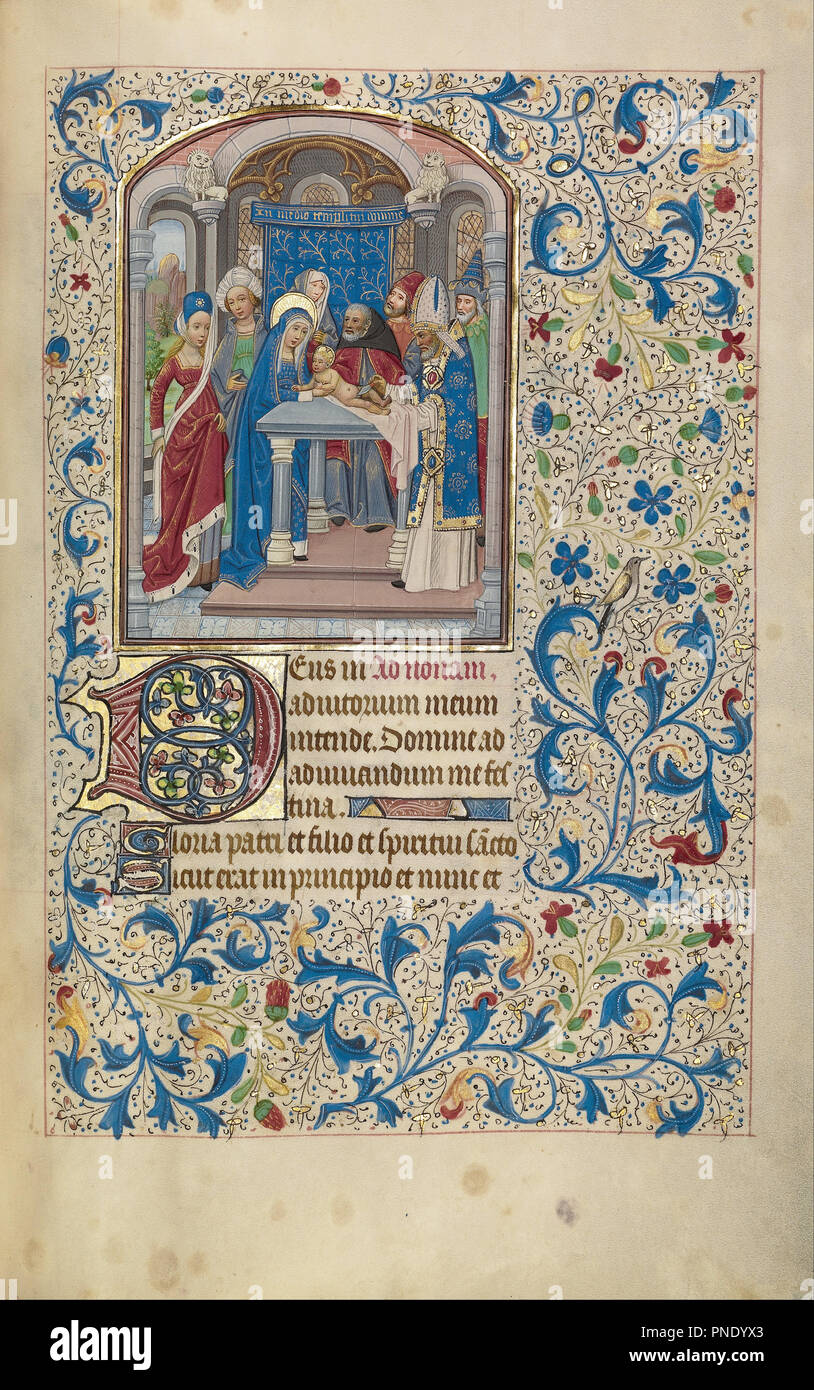 In medio templi tui domine
Deus in Ad nonam.
adiutorium meum
intende. Domine ad
adiuuandum me fes
tina.
Gloria patri et filio et spiritui sancto
Sicut erat in principio et nunc et
alamy
Image ID: PNDYX3
www.alamy.com